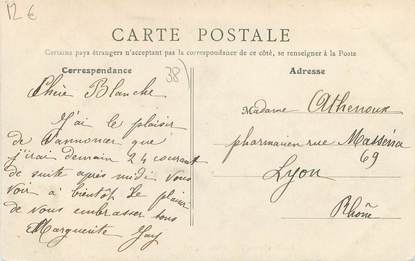 12€
CARTE POSTALE
Certains pays étrangers n'acceptant pas la correspondance de ce côté, se renseigner à la Poste
Correspondance
38)
Chère Blanche
J'ai le plaisir
de t'annoncer que
j'irai demain 24 courant
de suite après midi vous
voir à bientôt le plaisir
de vous embrasser tous
Marguerite Gay
Adresse
Madame Athenoux
pharmacien rue Masséna
69
Lyon
Rhône